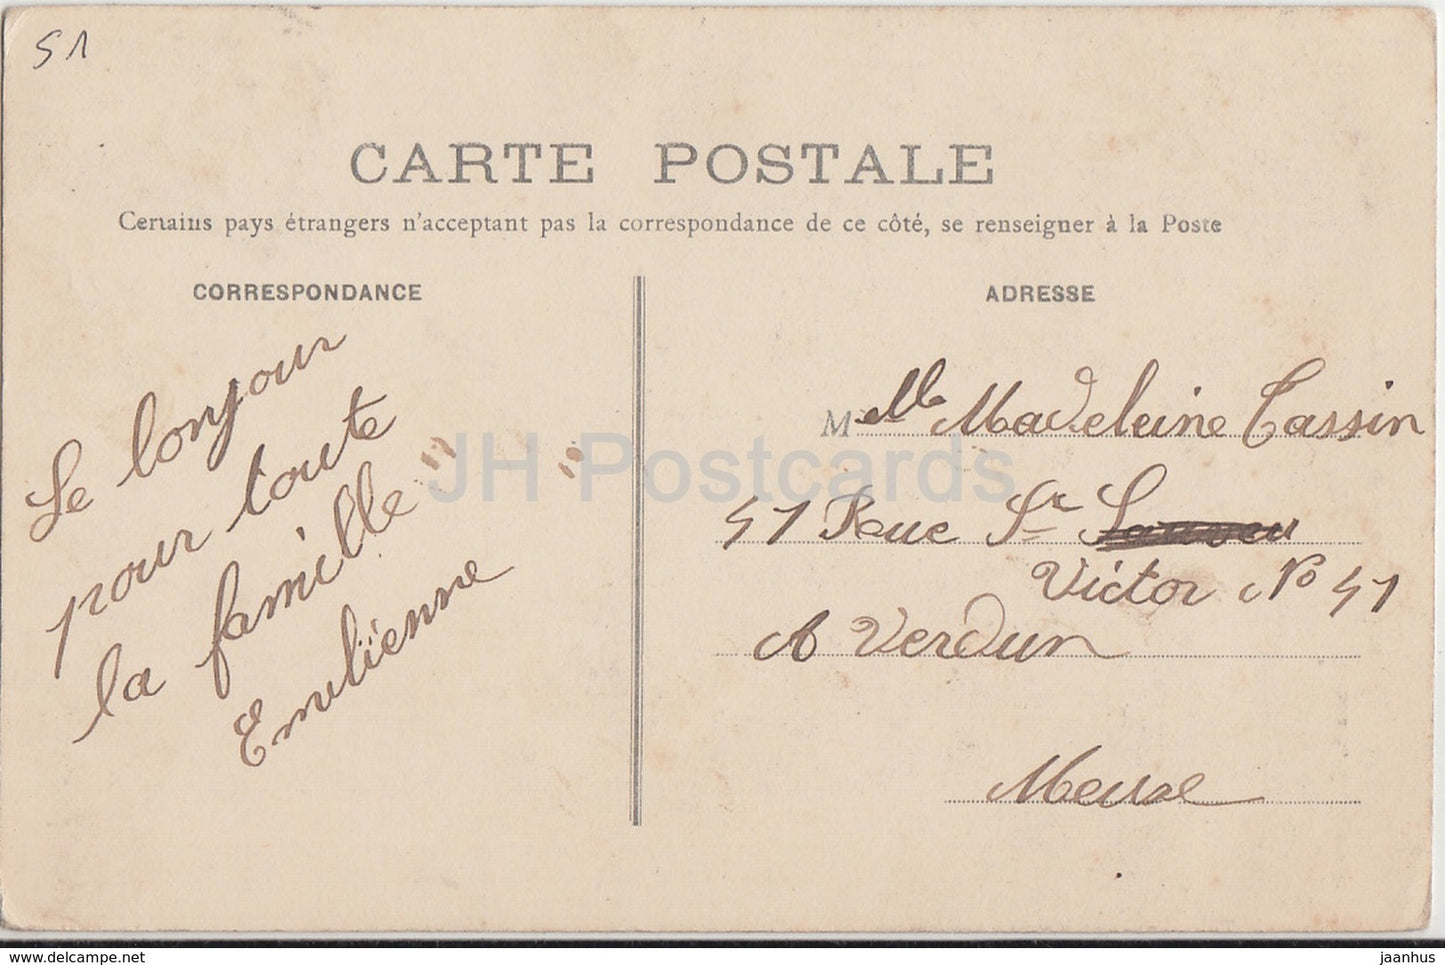 51
CARTE POSTALE
Certains pays étrangers n'acceptent pas la correspondance de ce côté, se renseigner à la Poste
CORRESPONDANCE
Le bonjour
pour toute
la famille
Emelienne
ADRESSE
Melle Madeleine Cassin
51 Rue St
Victor No 51
A Verdun
Meuse
JH Postcards
www.delcampe.net
jaanhus